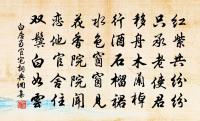 红紫共纷纷
只承老使君
移舟木蘭棹
行酒石榴裙
水色窗窗見
花香院院聞
恋他官舍住
双鬓白如雲
白居易官宅词典網集